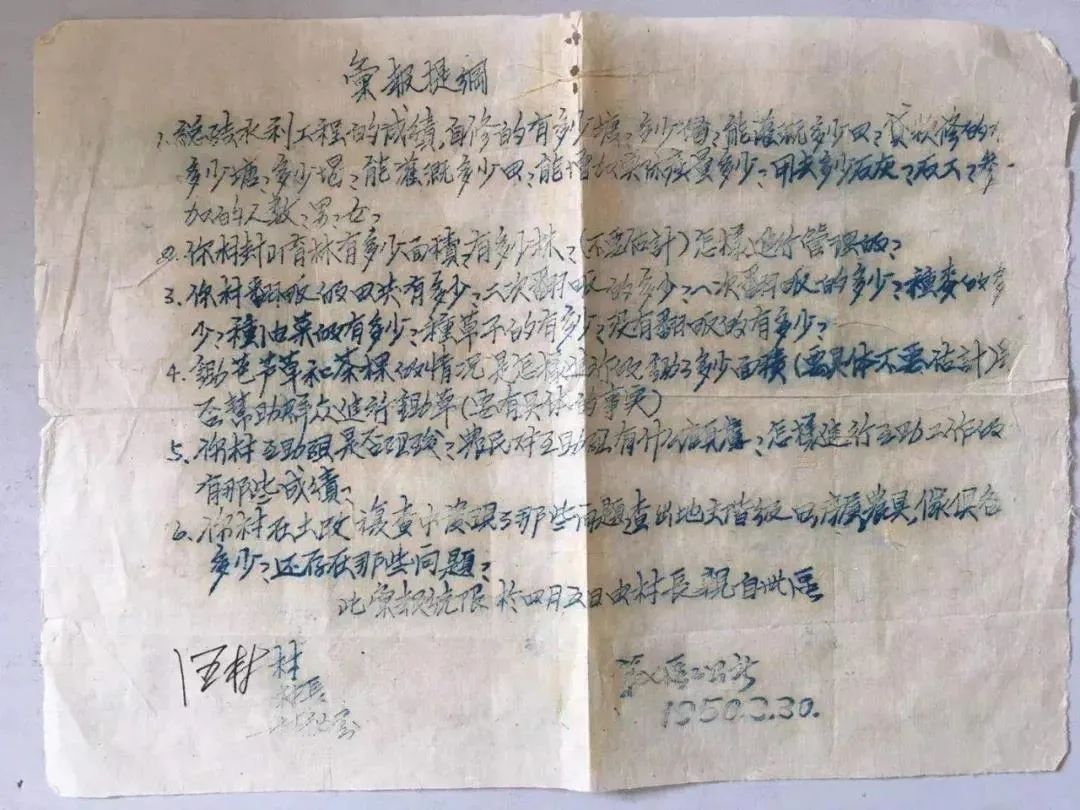 彙報提綱
1. 總結水利工程的成績,自修的有多少塘?多少堰?能灌溉多少田?貸款修的
多少塘?多少堰?能灌溉多少田?能增加实际產量多少?用去多少石灰?石工?参
加的人数?男?女?
2. 你村封山育林有多少面積?有多少株?(不要估計)怎樣進行管理的?
3. 你村翻耕的田共有多少?二次翻耕的多少?一次翻耕的多少?種麥的多
少?種油菜的有多少?種草子的有多少?没有翻耕的有多少?
4. 鋤芭芦草和茶棵的情况是怎樣進行的?鋤了多少面積(要具体不要估計)是
否幫助群众進行鋤草(要有具体的事实)
5. 你村互助組是否組織?農民对互助組有什么顧慮?怎樣進行互助工作的
有那些成績?
6. 你村在土改複查中發現了那些問題查出地主階級田 農具傢俱各
多少?还存在那些问題?
此彙報統限於四月五日由村長親自 區
汪村 村
村長
區公所
1950.3.30.